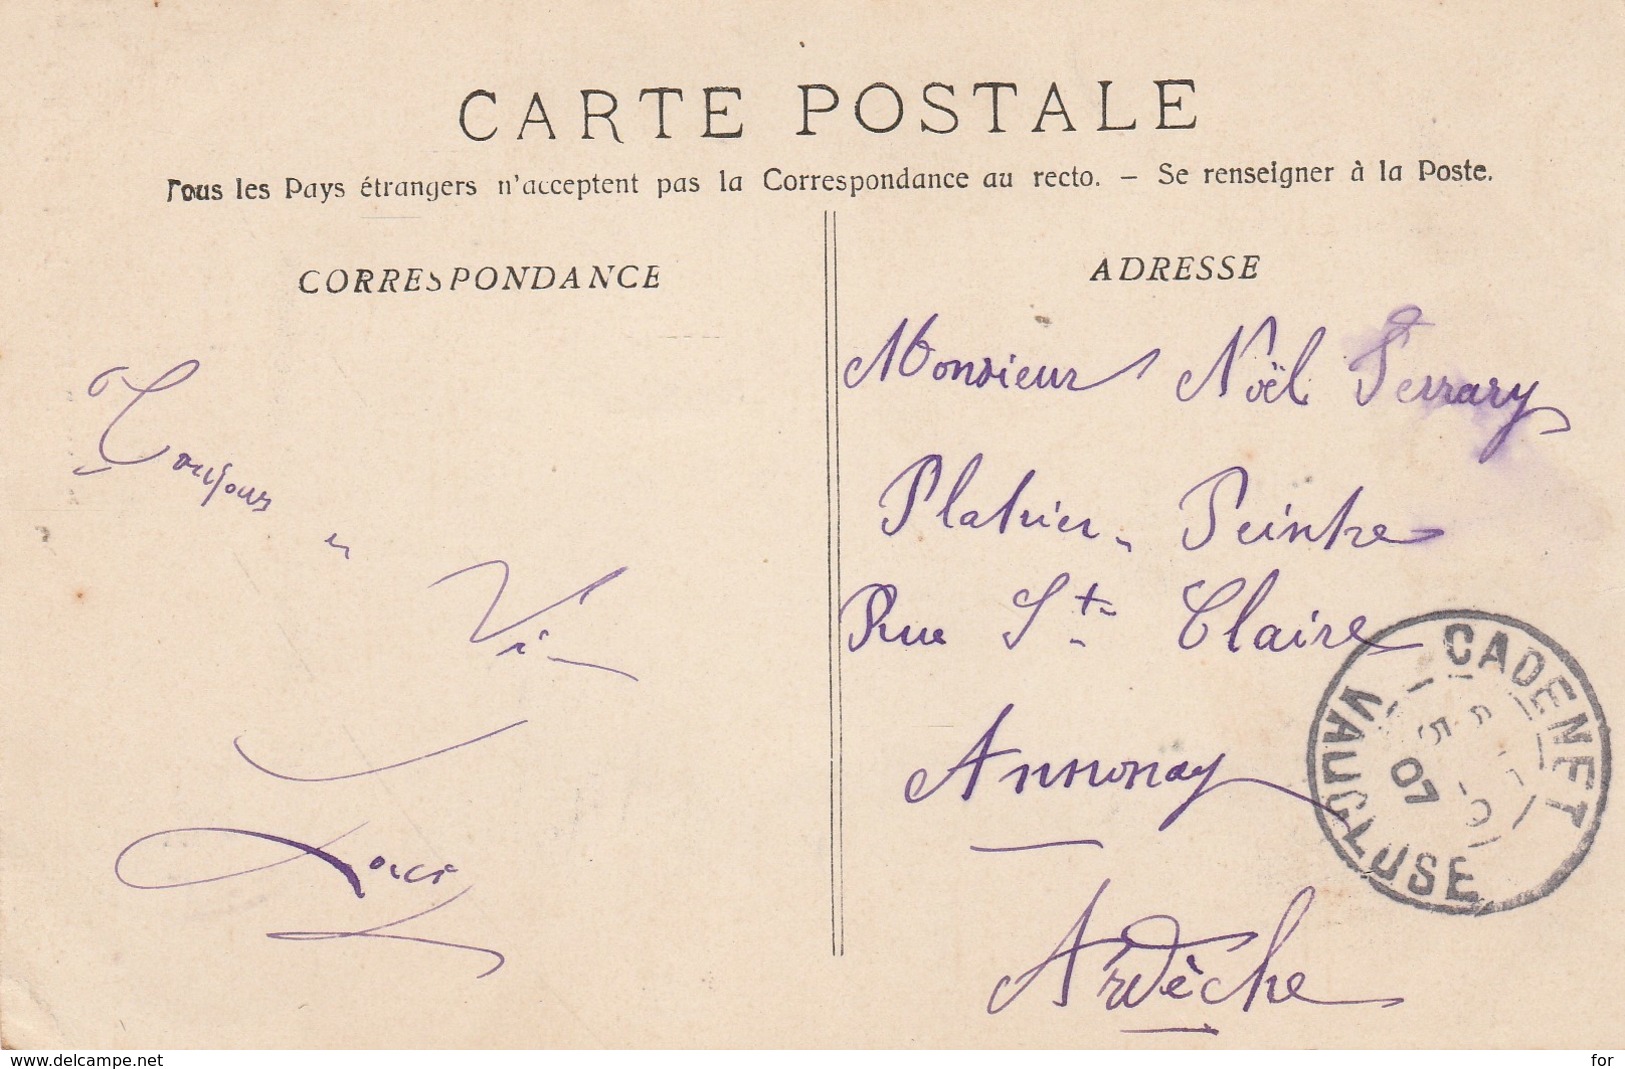 CARTE POSTALE
Tous les Pays étrangers n'acceptent pas la Correspondance au recto. — Se renseigner à la Poste.
CORRESPONDANCE
Toujours
en
Vi
ADRESSE
Monsieur Noël Ferrary
Platrier - Peintre
Rue Ste Claire
Annonay
Ardèche
CADENET
VAUCLUSE
07
www.delcampe.net
for